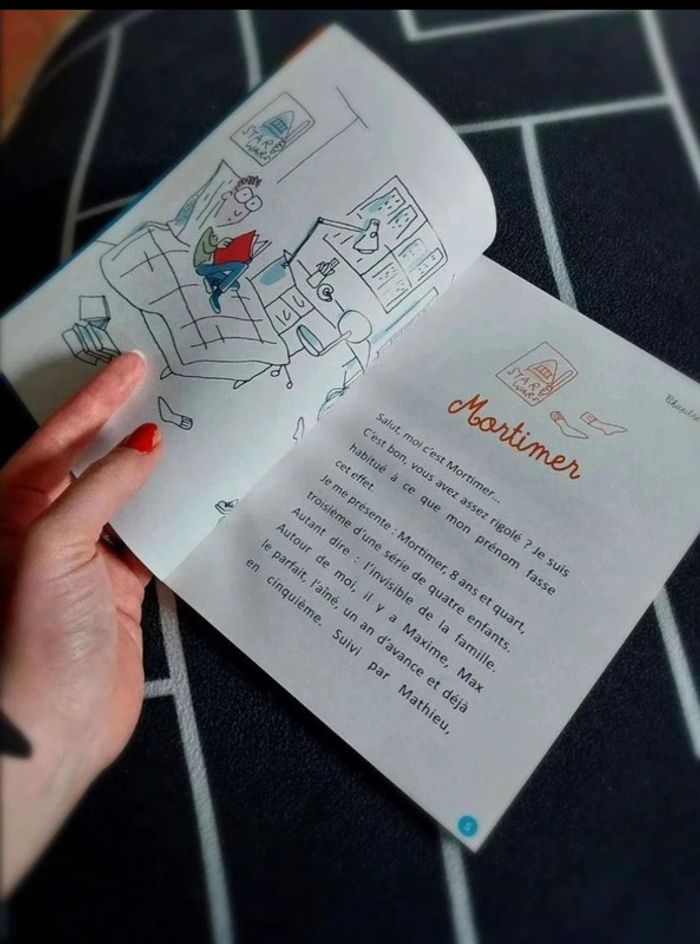 STAR
WARS
Chapitre
STAR
WARS
Mortimer
Salut, moi c'est Mortimer...
C'est bon, vous avez assez rigolé ? Je suis
habitué à ce que mon prénom fasse
cet effet.
Je me présente : Mortimer, 8 ans et quart,
troisième d'une série de quatre enfants.
Autant dire : l'invisible de la famille.
Autour de moi, il y a Maxime, Max
le parfait, l'aîné, un an d'avance et déjà
en cinquième. Suivi par Mathieu,
5